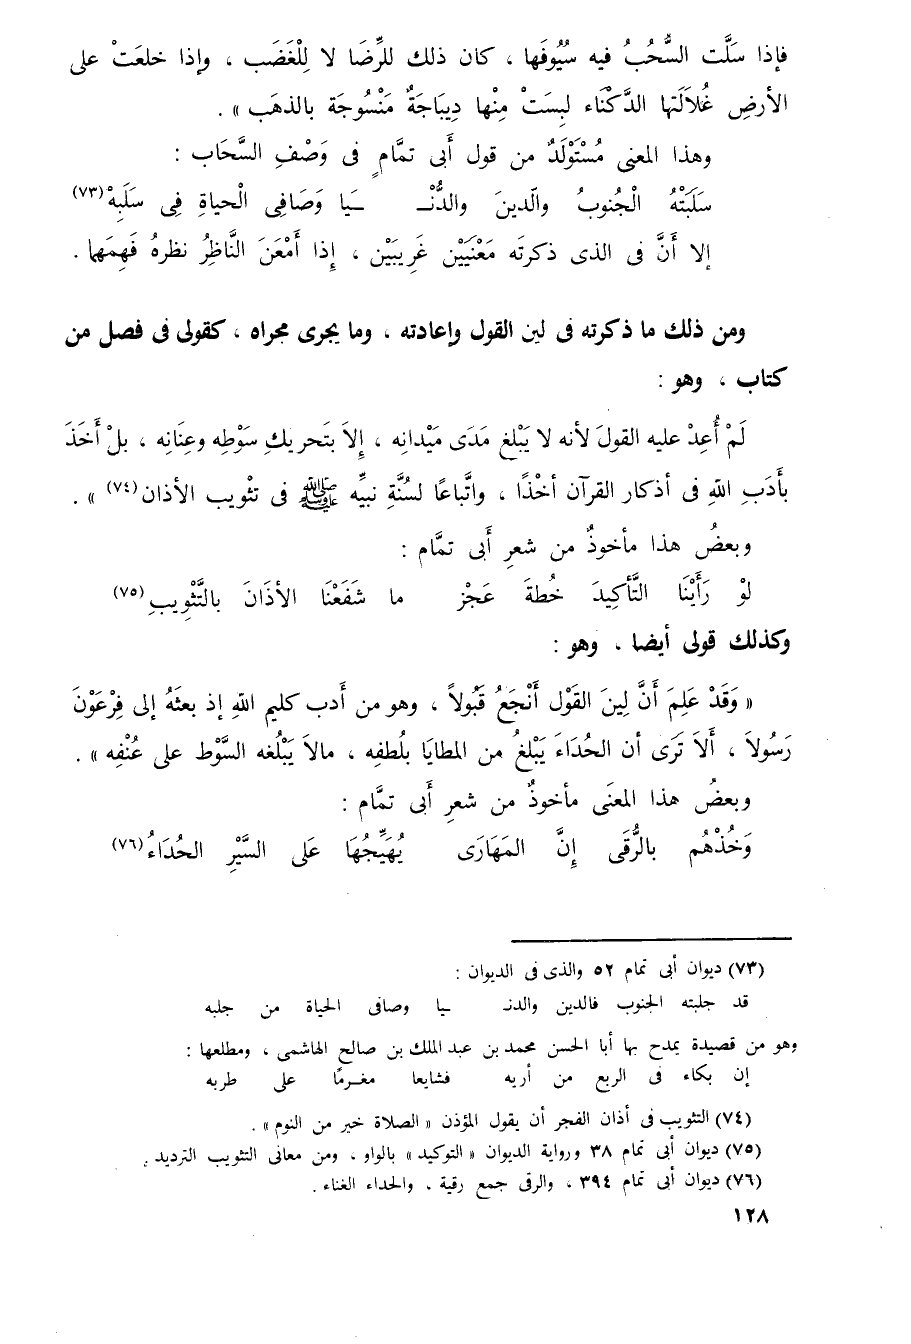 فإذا سَلَّت السُّحُبُ فيه سُيُوفَها ، كان ذلك للرِّضَا لا لِلْغَضَب ، وإذا خلعَتْ على
الأرضِ غُلاَلَتَها الدَّكْنَاء لبِسَتْ مِنْها دِيبَاجَةً مَنْسُوجَة بالذهَب » .
وهذا المعنى مُسْتَوْلَدٌ من قول أَبى تمَّامٍ فى وَصْفِ السَّحَاب :
سَلَبَتْهُ الْجُنوبُ والّدينَ والدُّنْـ ـيَا وَصَافِى الْحياةِ فِى سَلَبِهْ(٧٣)
إلا أَنَّ فى الذى ذكرتَه مَعْنَيَيْن غَرِيبَيْن ، إِذا أَمْعَنَ النَّاظِرُ نظرهُ فَهِمَهما .
ومن ذلك ما ذكرته فى لين القول وإعادته ، وما يجرى مجراه ، كقولى فى فصل من
كتاب ، وهو :
لَمْ أُعِدْ عليه القولَ لأنه لا يَبْلغ مَدَى مَيْدانِه ، إِلاَ بتَحريكِ سَوْطِه وعِنَانِه ، بلْ أَخَذَ
بأَدَبِ اللهِ فى أذكار القرآن أخْذًا ، واتَّباعًا لسُنَّةِ نبيِّه ﷺ فى تثْويب الأذان(٧٤) » .
وبعضُ هذا مأخوذٌ من شعرِ أَبى تمَّام :
لوْ رَأَيْنَا التَّأكِيدَ خُطةَ عَجْز ما شَفَعْنَا الأذَانَ بالتَّثْويبِ(٧٥)
وكذلك قولى أيضا ، وهو :
« وَقَدْ عَلِمَ أَنَّ لِينَ القَوْل أَنْجَعُ قَبُولاً ، وهو من أَدب كليم اللهِ إذ بعثَهُ إلى فِرْعَوْنَ
رَسُولاَ ، أَلاَ تَرَى أن الحُدَاءَ يَبْلغُ من المطَايَا بلُطفِه ، مالاَ يَبْلُغه السَّوْط على عُنْفِه » .
وبعضُ هذا المعنَى مأخوذٌ من شعرِ أَبى تمَّام :
وَخُذْهُم بالرُّقَى إِنَّ المَهَارَى يُهَيِّجُهَا عَلَى السَّيْرِ الحُدَاءُ(٧٦)
(٧٣) ديوان أبى تمام ٥٢ والذى فى الديوان :
قد جلبته الجنوب فالدين والدنـ ـيا وصافى الحياة من جلبه
وهو من قصيدة يمدح بها أبا الحسن محمد بن عبد الملك بن صالح الهاشمى ، ومطلعها :
إن بكاء فى الربع من أربه فشايعا مغـرمًا على طربه
(٧٤) التثويب فى أذان الفجر أن يقول المؤذن « الصلاة خير من النوم » .
(٧٥) ديوان أبى تمام ٣٨ ورواية الديوان « التوكيد » بالواو ، ومن معانى التثويب الترديد .
(٧٦) ديوان أبى تمام ٣٩٤ ، والرقى جمع رقية ، والحداء الغناء .
١٢٨